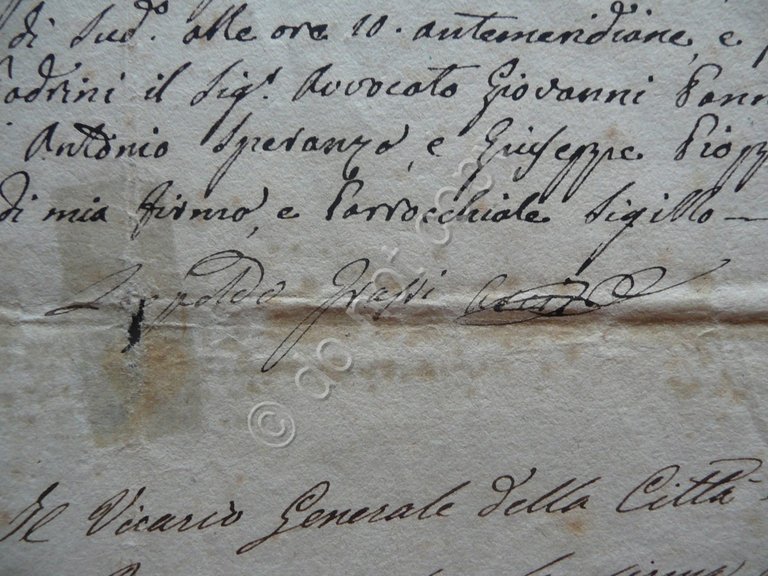 di Sud.º alle ore 10. antemeridiane, e
adrini il Sig.r Avvocato Giovanni Pann
Antonio Speranza, e Giuseppe Piopp
di mia firma, e Parrocchiale Sigillo —
Leopoldo Grassi
Il Vicario Generale della Città